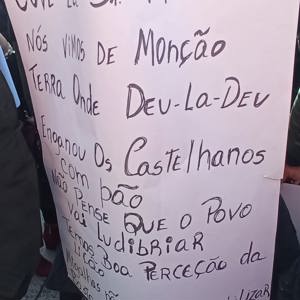 Nós Vimos DE Monção
TERRA ONDE DEU-LA-DEU
Enganou Os CASTELHANOS
COM PÃO
NÃO PENSE QUE O POVO
VOS LUDIBRIAR
TEMOS BOA PERCEÇÃO DA
LIÇÃO